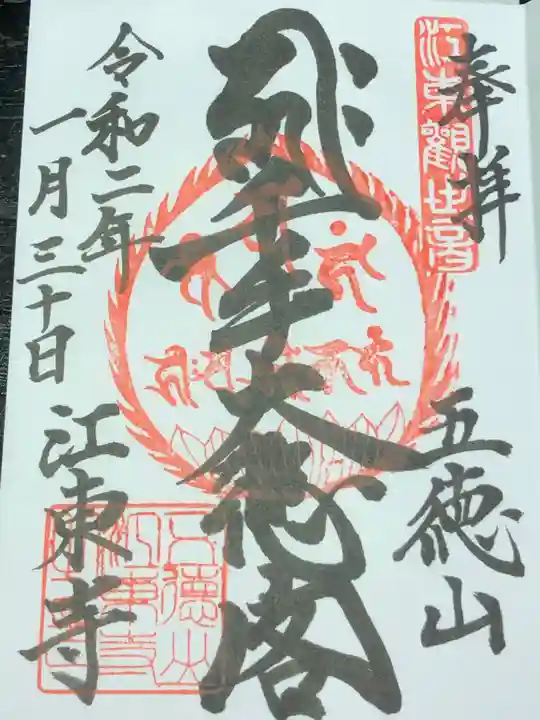 奉拝
江東観世音
五徳山
千手大悲閣
令和二年
一月三十日
江東寺
五徳山
江東寺